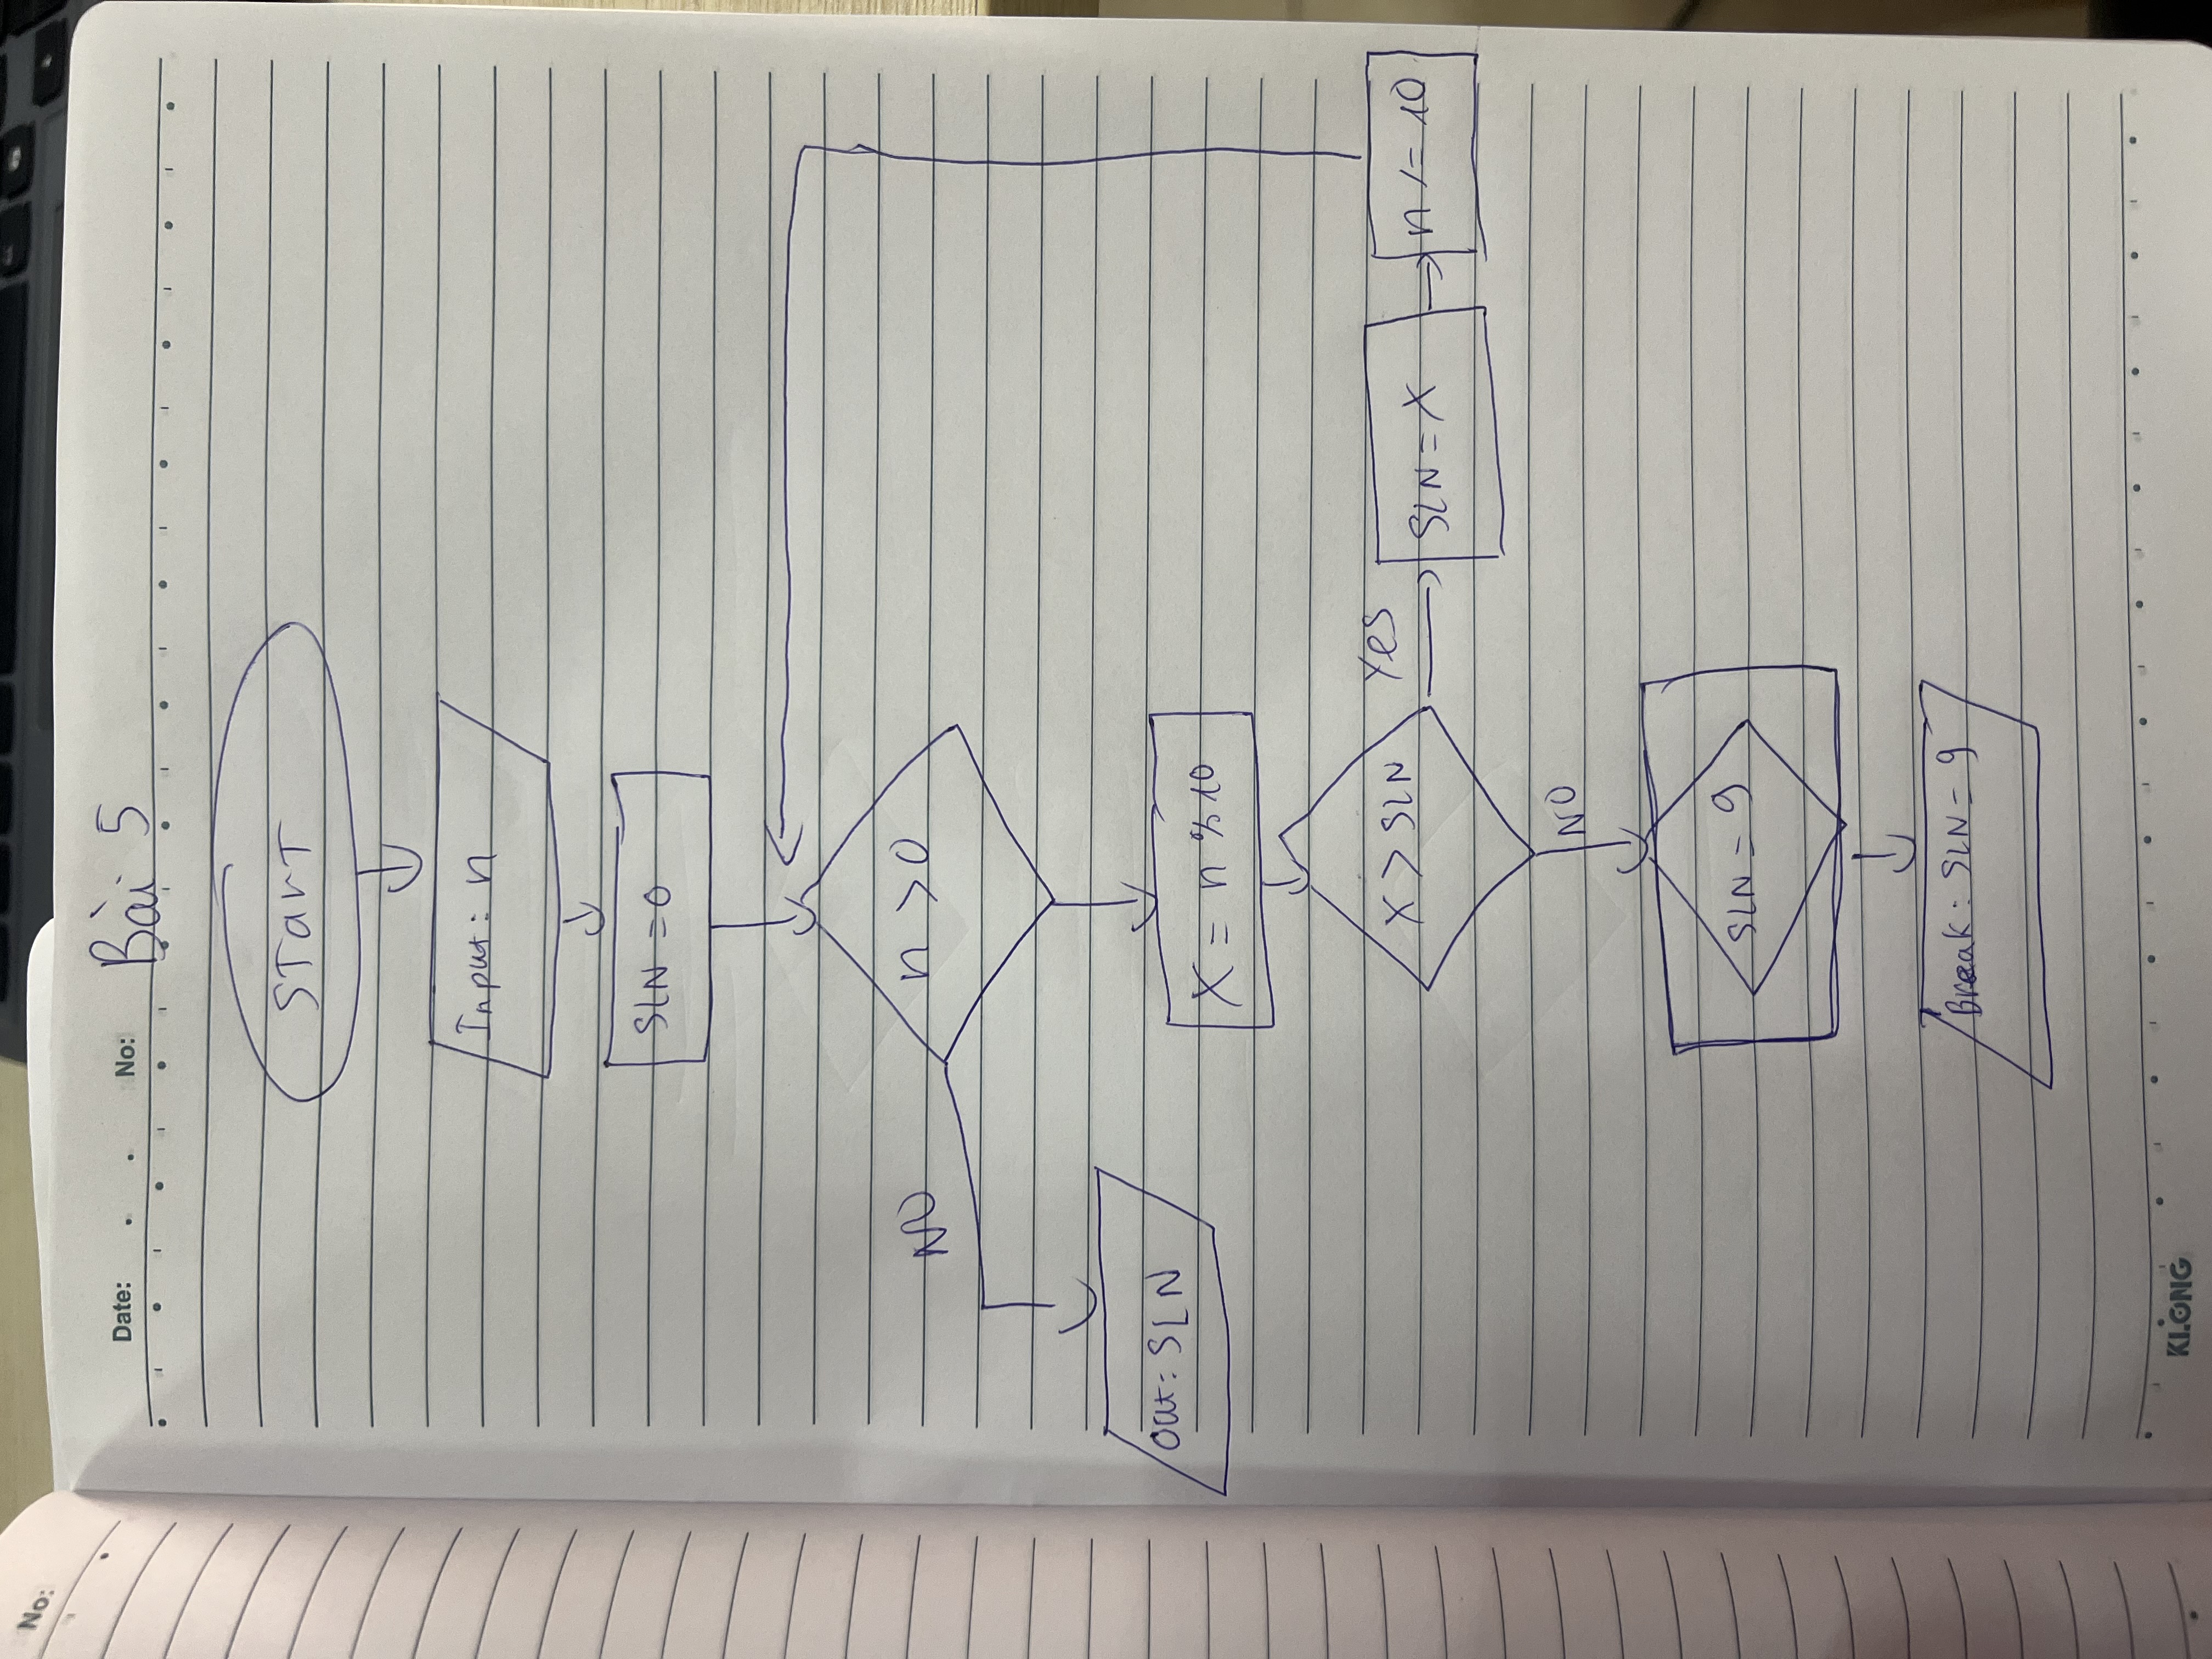 No:
Date: No: Bài 5
START
Input: n
SLN = 0
n > 0
NO
Out: SLN
X = n % 10
X > SLN
Yes
SLN = X
n /= 10
NO
SLN = 9
Break: SLN = 9
KLONG